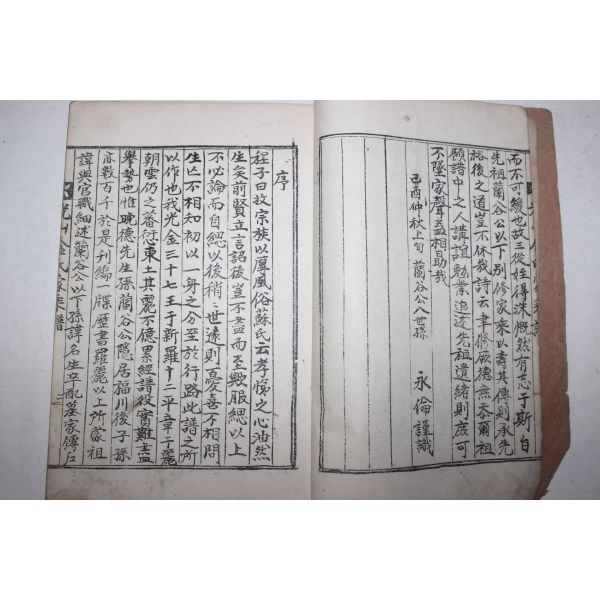 而不可緩也故三從姪得洙慨然有志于斯自
先祖蘭谷公以下別修家乘以書其傳則承先
裕後之道豈不休哉詩云聿修厥德無忝爾祖
願譜中之人講誼勉業追述先祖遺緒則庶可
不墜家聲盍相勗哉
己酉仲秋上旬 蘭谷公八世孫
永倫謹識
序
程子曰收宗族以厚風俗蘇氏云孝悌之心油然
生矣前賢立言詔後豈不盡而至無服緦以上
不必論而自緦以後稍之世遠則憂喜不相問
生亡不相知初以一身之分至於行路此譜之所
以作也我光金三十七王于新羅十二平章于麗
朝雲仍之蕃衍東土其麗不億累經譜役實難盡
擧勢也惟晩德先生孫蘭谷公隱居福川後子孫
亦數百千於是刊編一牒歷書羅麗以上所蒙祖
諱與官職細述蘭谷公以下孫諱名生卒配墓家傳
光山金氏家乘譜